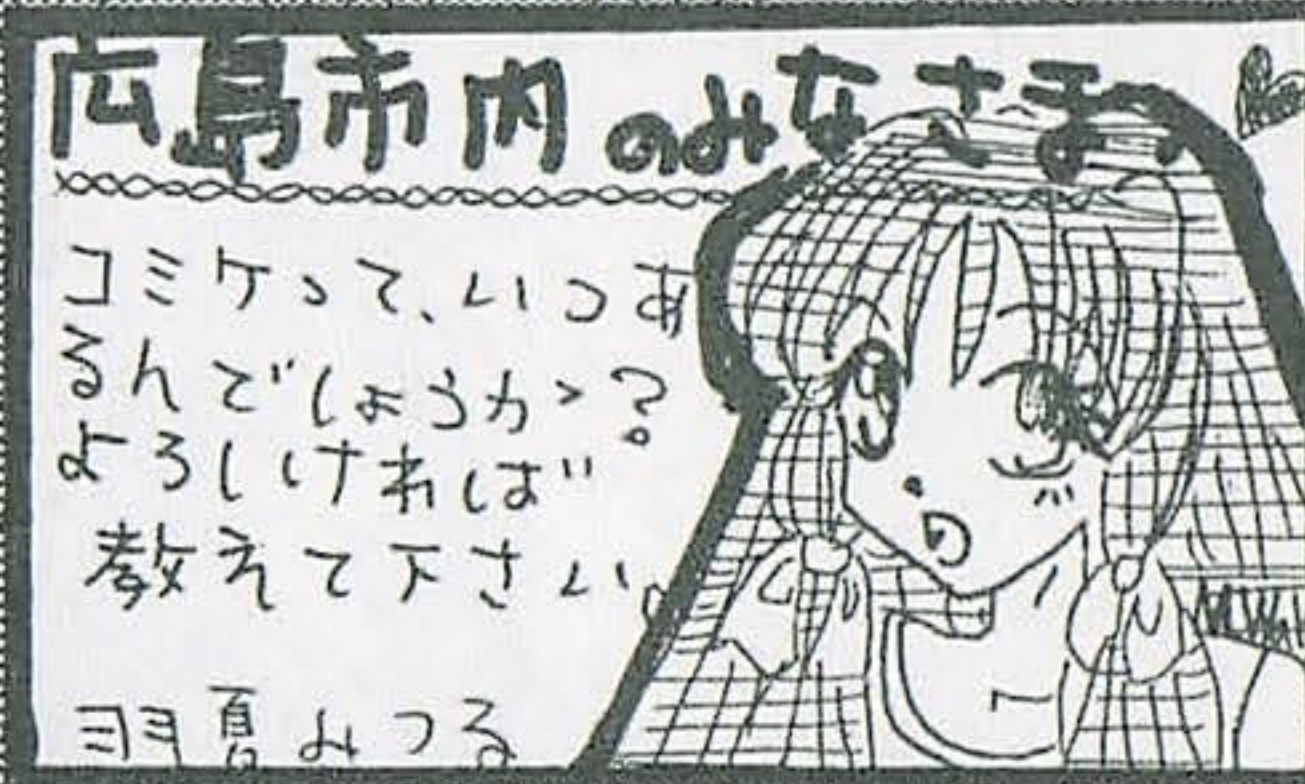 広島市内のみなさま
コミケって、いつあ
るんでしょうか?
よろしければ
教えて下さい。
羽夏みつる